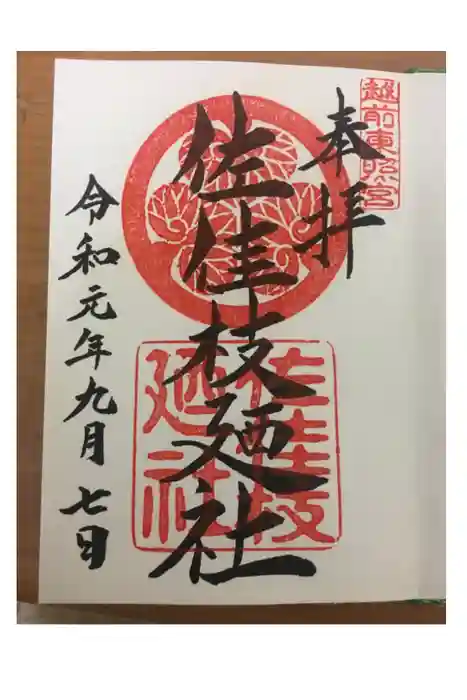 越前東照宮
奉拝
佐佳枝廼社
佐佳枝
廼社
令和元年九月七日